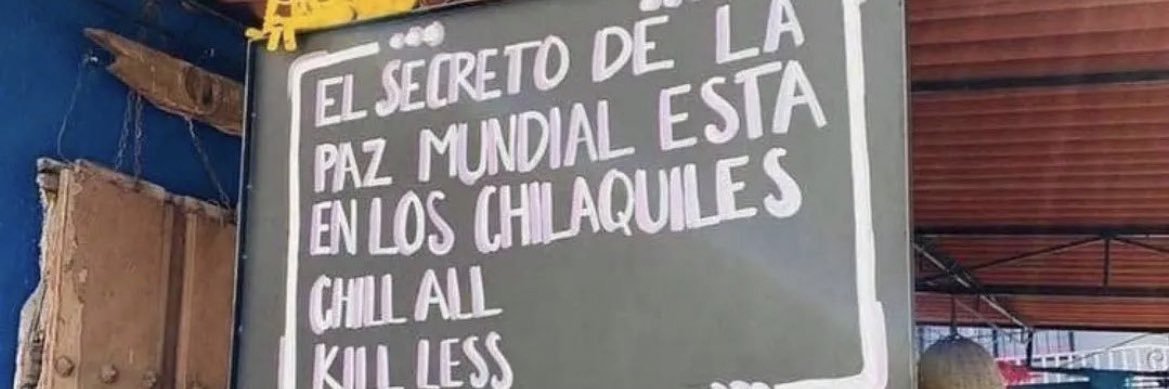 EL SECRETO DE LA
PAZ MUNDIAL ESTA
EN LOS CHILAQUILES
CHILL ALL
KILL LESS